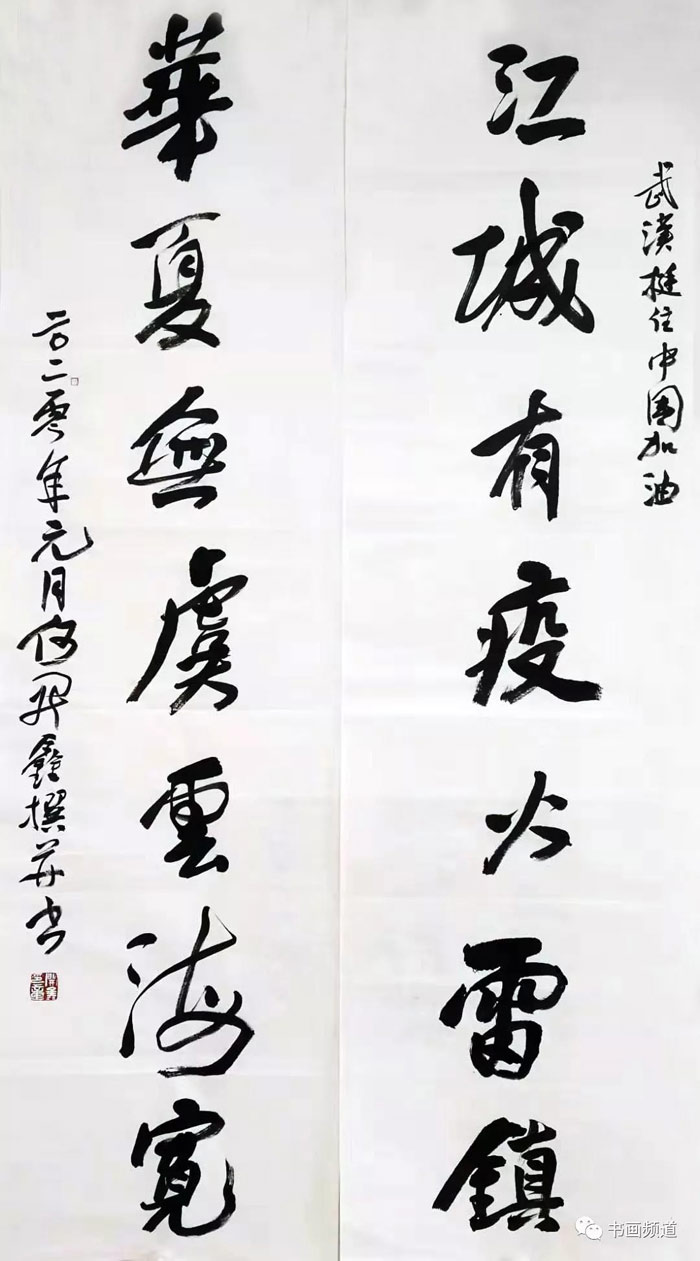 武漢挺住中国加油
江城有疫火雷鎮
華夏無虞雲海寬
二〇二零年元月何開鑫撰并书
书画频道